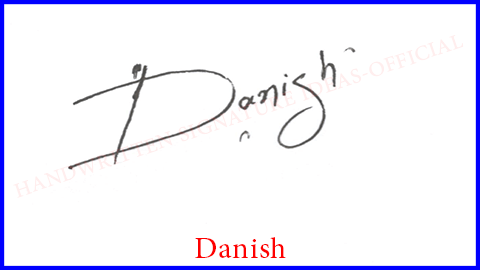 Danish
HANDWRITTEN SIGNATURE IDEAS-OFFICIAL
Danish